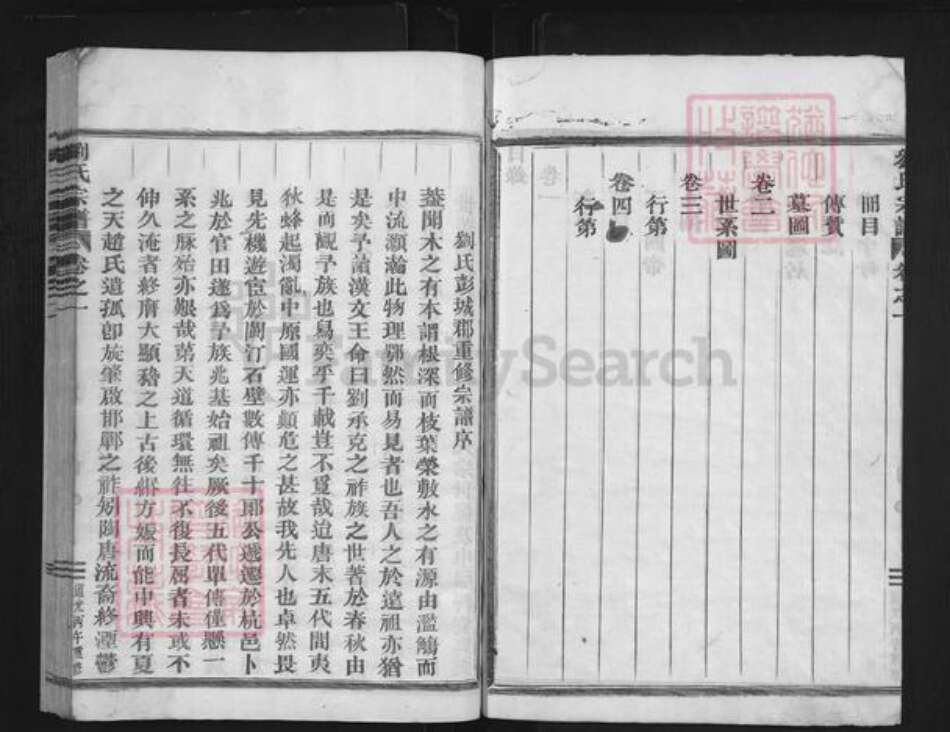 冊目
傳贊
墓圖
卷二
世系圖
卷三
行第
卷四
行第
劉氏彭城郡重修宗譜序
蓋聞木之有本謂根深而枝葉榮敷水之有源由濫觴而
中流灝瀚此物理鄂然而易見者也吾人之於遠祖亦猶
是矣予讀漢文王命曰劉承克之祚族之世著於春秋由
是而觀予族也烏奕乎千載豈不亶哉迨唐末五代間夷
狄蜂起濁亂中原國運亦顛危之甚故我先人也卓然畏
見先機遊宦於閩汀石壁數傳千十郎公遊遷於杭邑卜
兆於官田遂為予族兆基始祖矣厥後五代單傳僅懸一
系之脉始亦艱哉第天道循環無往不復長屈者未或不
伸久淹者終廓大顯稽之上古後緡方娠而能中興有夏
之天趙氏遺孤卽旋肇啟邯鄲之祚矧陶唐流裔終湮鬱
劉氏宗譜
卷之一
FamilySearch